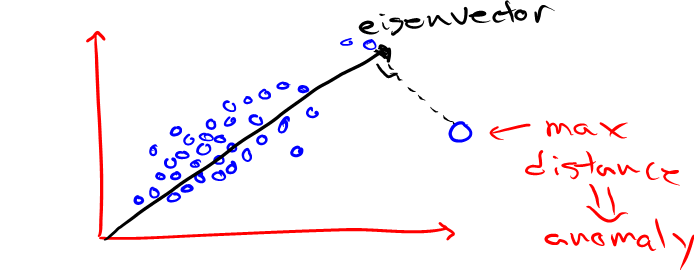 eigenvector
max
distance
anomaly